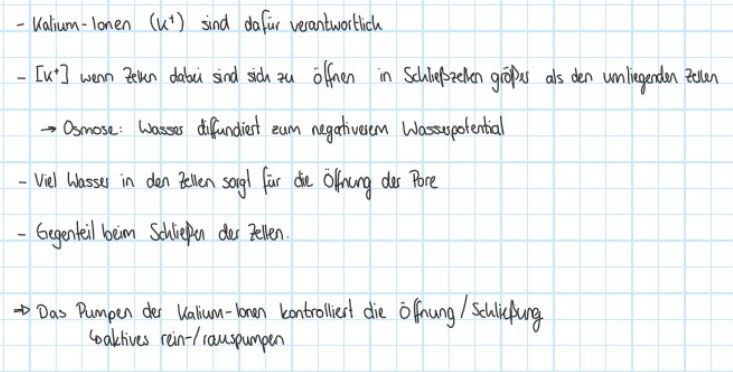 - Kalium-Ionen (K⁺) sind dafür verantwortlich
- [K⁺] wenn Zellen dabei sind sich zu öffnen in Schließzellen größer als den umliegenden Zellen
→ Osmose: Wasser diffundiert zum negativerem Wasserpotential
- Viel Wasser in den Zellen sorgt für die Öffnung der Pore
- Gegenteil beim Schließen der Zellen.
⇒ Das Pumpen der Kalium-Ionen kontrolliert die Öffnung/Schließung
↳ aktives rein-/rauspumpen